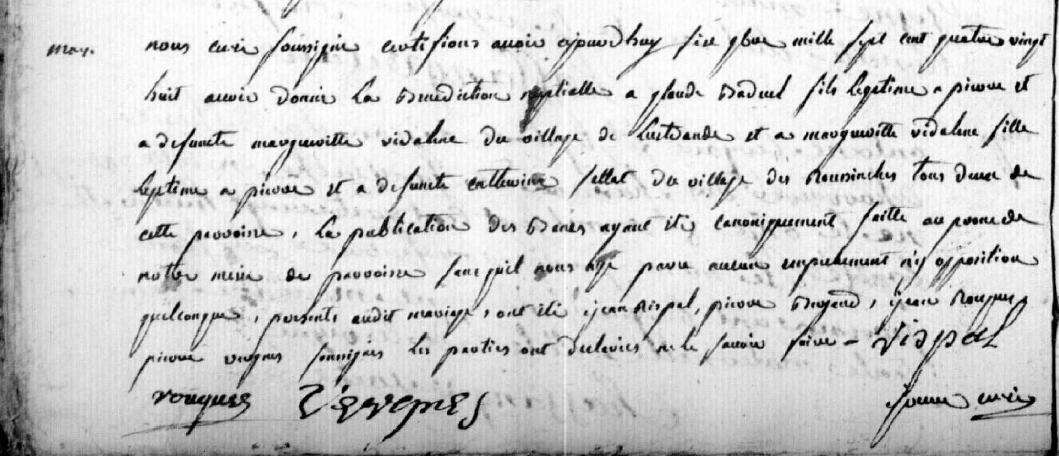 mar. nous curé soussigné certifions avoir ajourdhuy six 9bre mille sept cent quatre vingt
huit avoir donné la benediction nuptialle a glaude baduel fils legitime a pierre et
a defuncte margueritte vidaline du village de et a margueritte vidaline fille
legitime a pierre et a defuncte catherine sellat du village des tous deux de
cette parroisse, la publication des banes ayant été canoniquement faitte au prone de
notre messe de parroisse sans quil nous aye paru aucun empechement n'y opposition
quelconque, presents audit mariage, ont été jean vispal, pierre, jean rouques
pierre vergnes soussignés les parties ont declarées ne le savoir faire - vispal
rouques vergnes curé